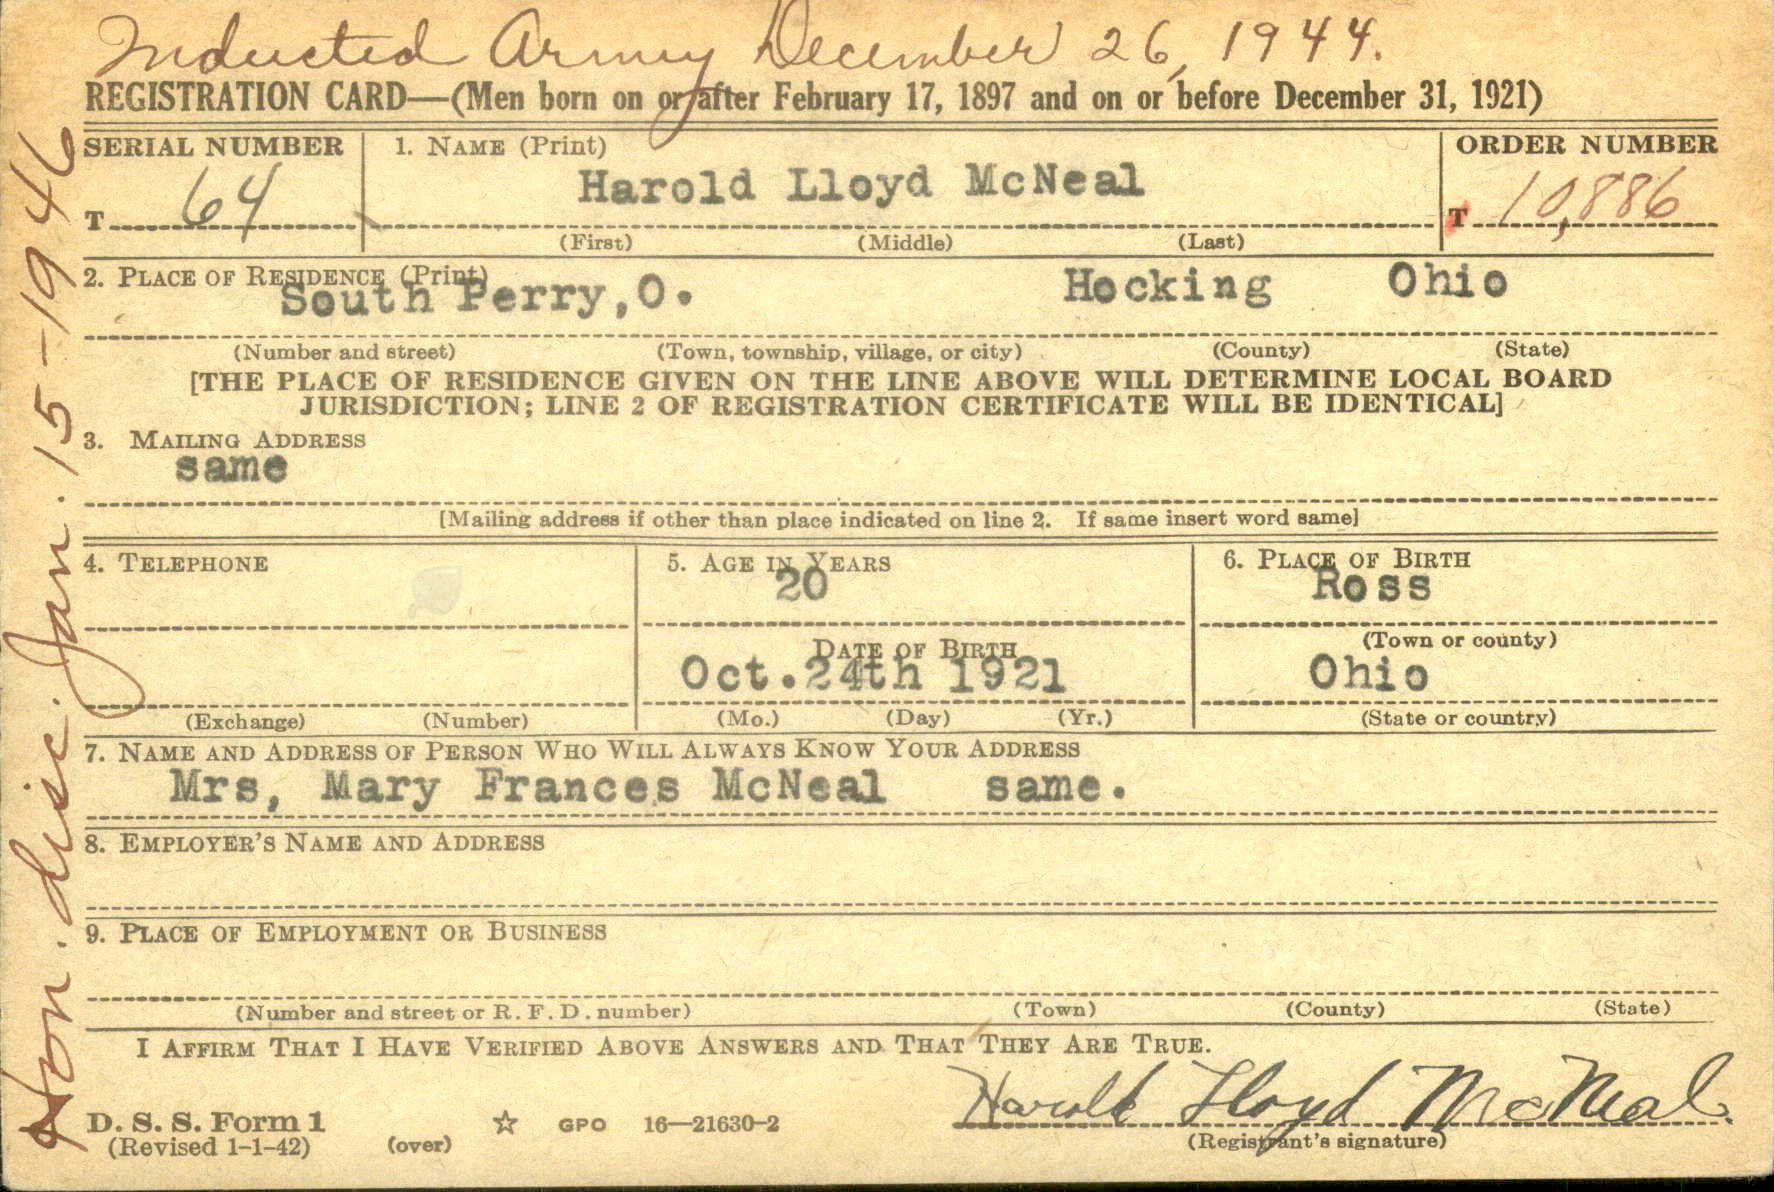 Inducted Army December 26, 1944.
REGISTRATION CARD—(Men born on or after February 17, 1897 and on or before December 31, 1921)
SERIAL NUMBER
T 64
1. NAME (Print)
Harold Lloyd McNeal
(First) (Middle) (Last)
ORDER NUMBER
T 10,886
2. PLACE OF RESIDENCE (Print)
South Perry,O. Hocking Ohio
(Number and street) (Town, township, village, or city) (County) (State)
[THE PLACE OF RESIDENCE GIVEN ON THE LINE ABOVE WILL DETERMINE LOCAL BOARD
JURISDICTION; LINE 2 OF REGISTRATION CERTIFICATE WILL BE IDENTICAL]
3. MAILING ADDRESS
same
[Mailing address if other than place indicated on line 2. If same insert word same]
4. TELEPHONE
(Exchange) (Number)
5. AGE IN YEARS
20
DATE OF BIRTH
Oct.24th 1921
(Mo.) (Day) (Yr.)
6. PLACE OF BIRTH
Ross
(Town or county)
Ohio
(State or country)
7. NAME AND ADDRESS OF PERSON WHO WILL ALWAYS KNOW YOUR ADDRESS
Mrs, Mary Frances McNeal same.
8. EMPLOYER'S NAME AND ADDRESS
9. PLACE OF EMPLOYMENT OR BUSINESS
(Number and street or R. F. D. number) (Town) (County) (State)
I AFFIRM THAT I HAVE VERIFIED ABOVE ANSWERS AND THAT THEY ARE TRUE.
Harold Lloyd McNeal.
(Registrant's signature)
D. S. S. Form 1
(Revised 1-1-42) (over) ☆ GPO 16—21630-2
Hon. disc. Jan. 15-1946